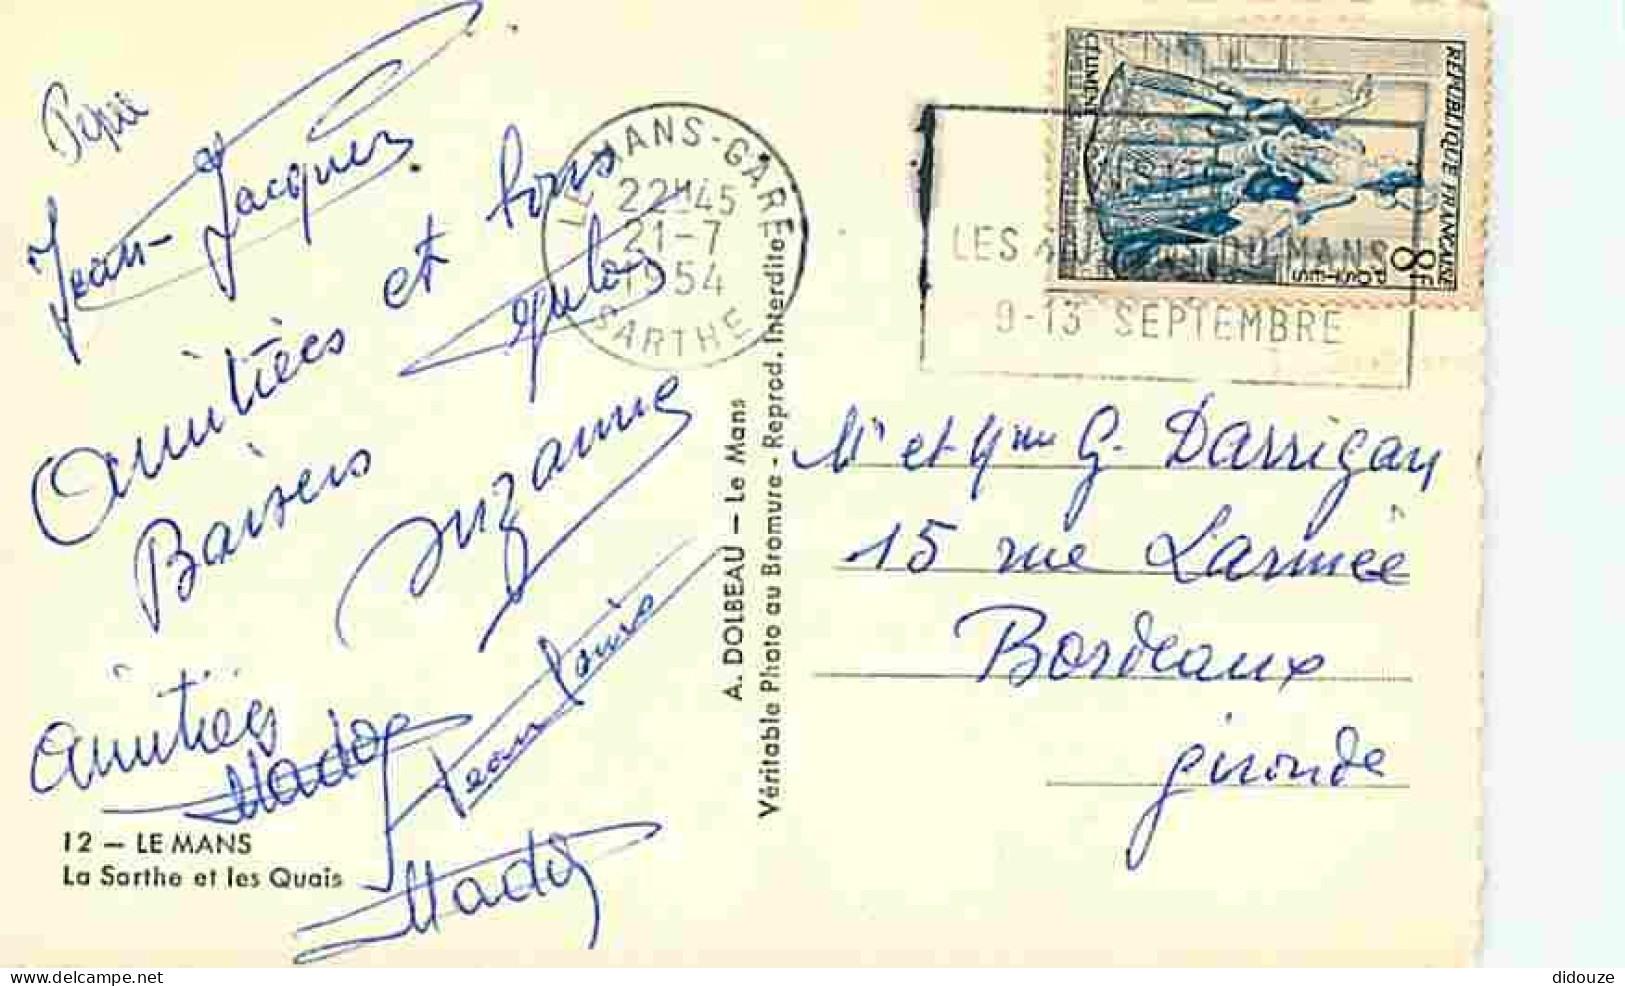 Jean-Jacques
Amitiées et tous
Baisers
Suzanne
Amitiées
Mado
Jean Louis
Mady
12 — LE MANS
La Sarthe et les Quais
A. DOLBEAU — Le Mans
Véritable Photo au Bromure - Reprod. Interdite
LE MANS-GARE
22H45
21-7
1954
SARTHE
LES DU MANS
9-13 SEPTEMBRE
REPUBLIQUE FRANÇAISE
8F
POSTES
CELIMENE
Mr et Mme G. Darrigan
15 rue Larmée
Bordeaux
Gironde
didouze